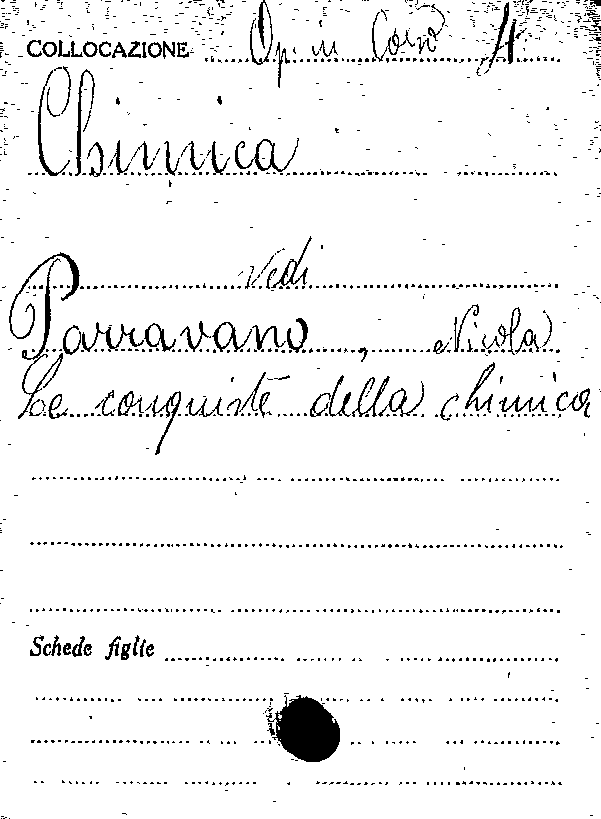 COLLOCAZIONE Op. in Corso H
Chimica
Vedi
Parravano, Nicola
Le conquiste della chimica
Schede figlie